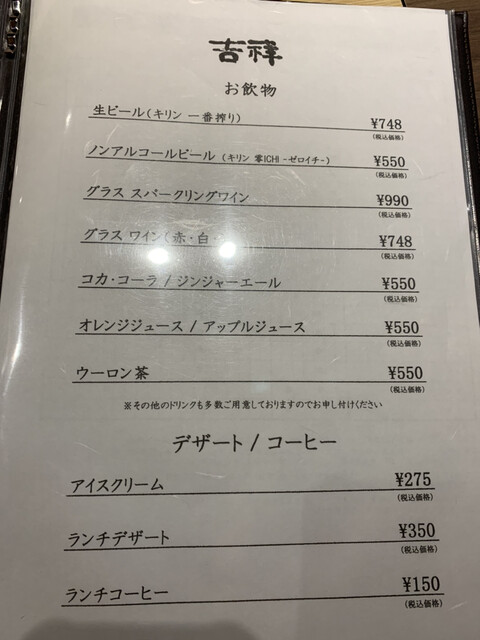 吉祥
お飲物
生ビール(キリン 一番搾り) ¥748
(税込価格)
ノンアルコールビール (キリン 零ICHI -ゼロイチ-) ¥550
(税込価格)
グラス スパークリングワイン ¥990
(税込価格)
グラス ワイン(赤・白 ¥748
(税込価格)
コカ・コーラ / ジンジャーエール ¥550
(税込価格)
オレンジジュース / アップルジュース ¥550
(税込価格)
ウーロン茶 ¥550
(税込価格)
※その他のドリンクも多数ご用意しておりますのでお申し付けください
デザート / コーヒー
アイスクリーム ¥275
(税込価格)
ランチデザート ¥350
(税込価格)
ランチコーヒー ¥150
(税込価格)